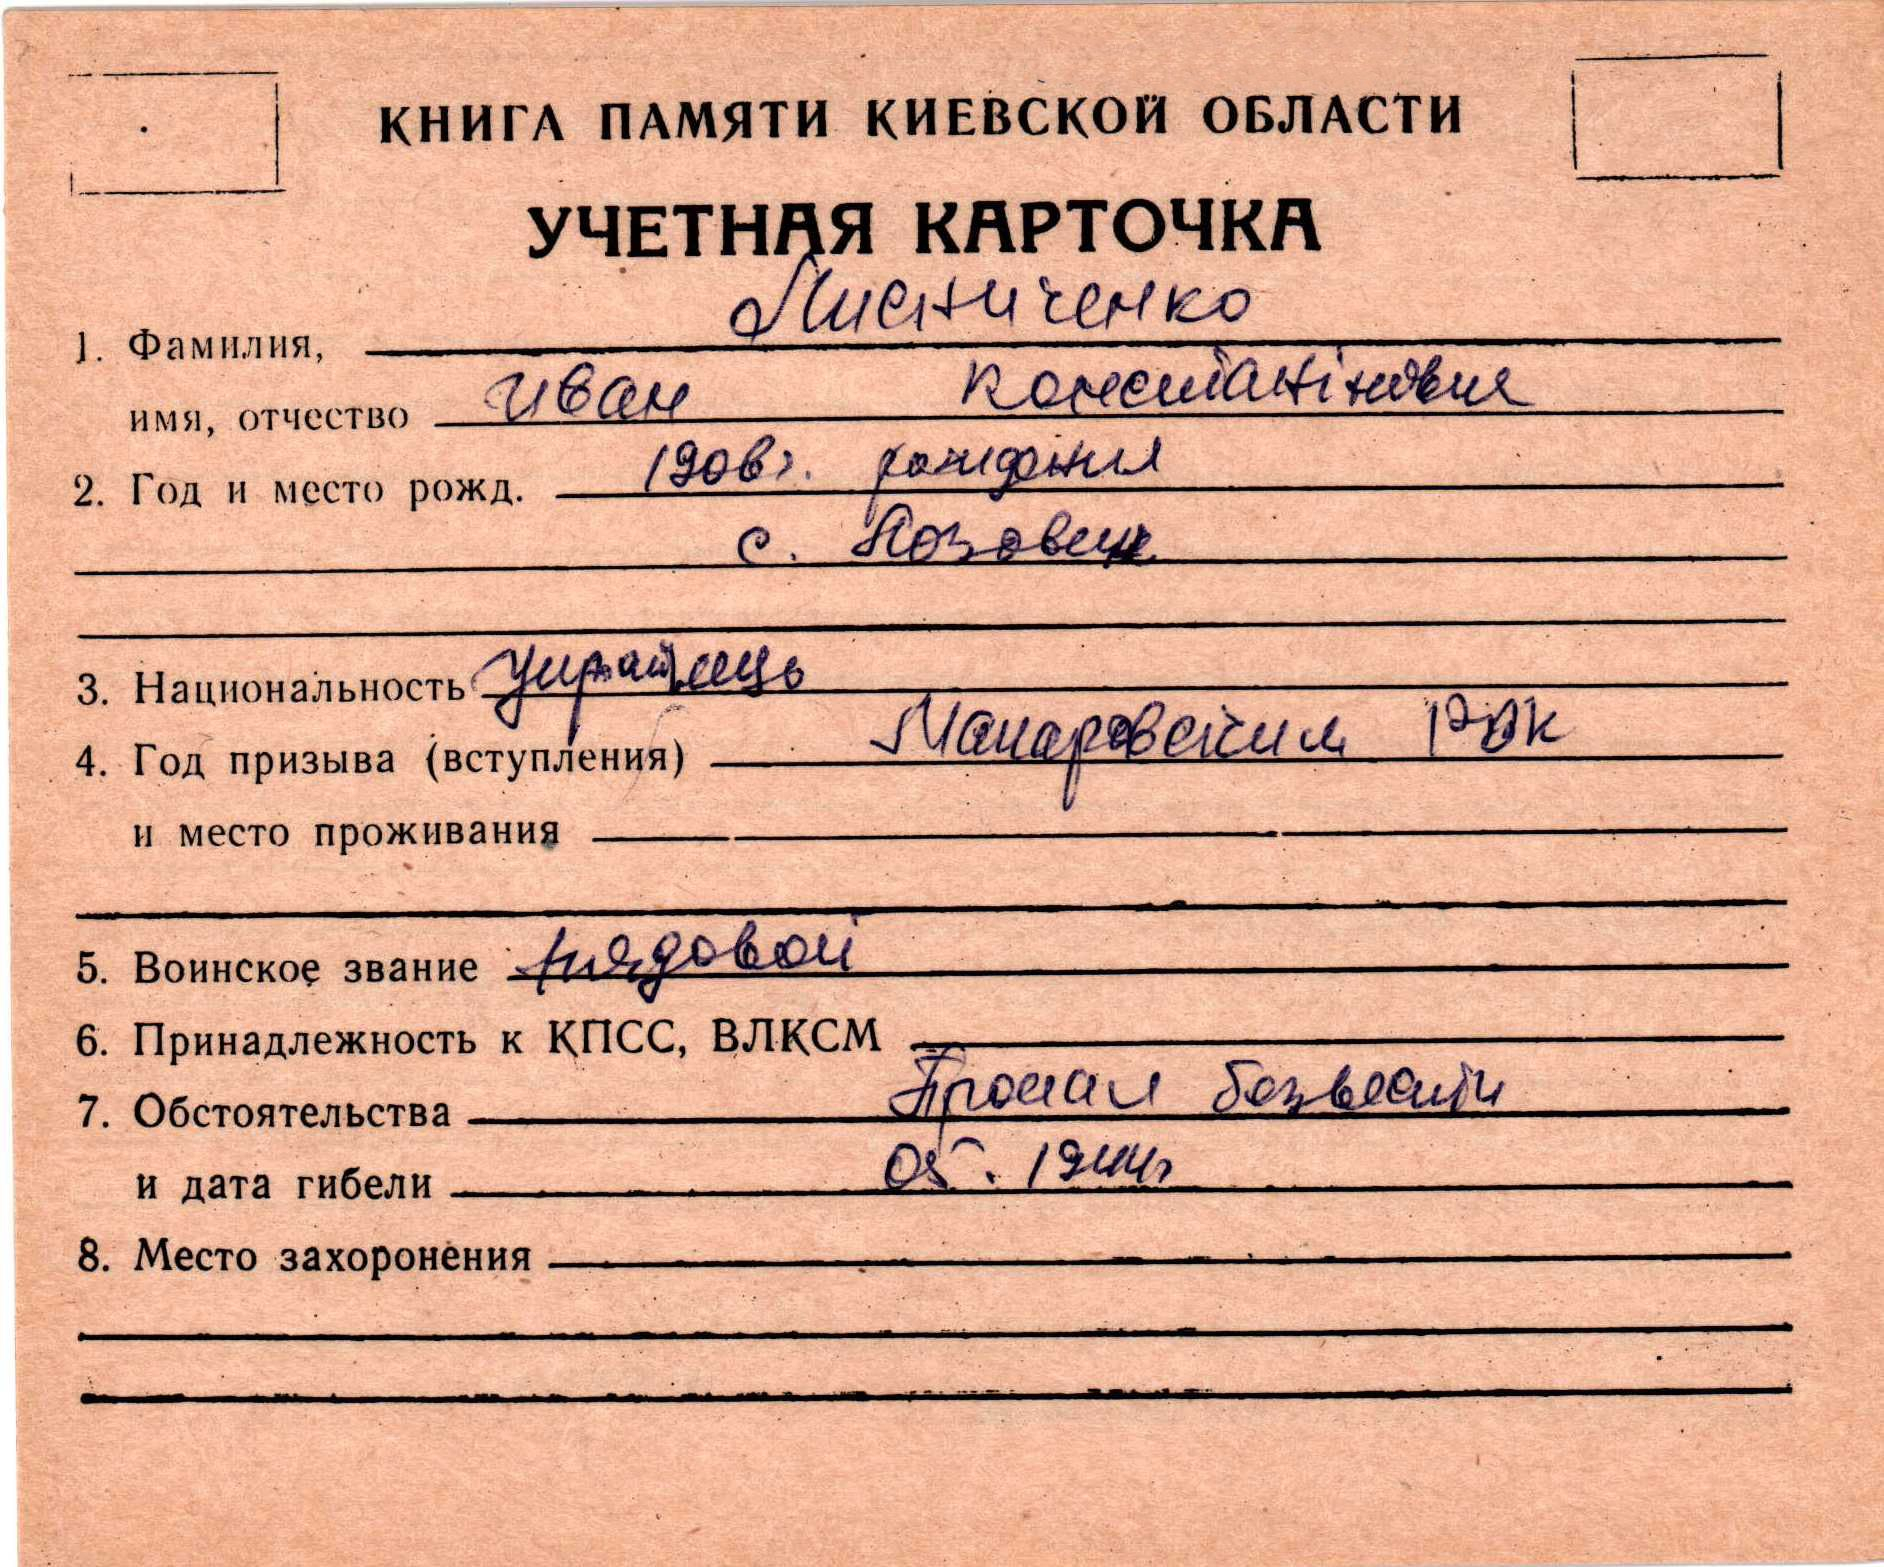 КНИГА ПАМЯТИ КИЕВСКОЙ ОБЛАСТИ
УЧЕТНАЯ КАРТОЧКА
1. Фамилия, Лисниченко
имя, отчество Иван Константінович
2. Год и место рожд. 1906г. рождения
с.
3. Национальность українець
4. Год призыва (вступления) Макаровским РВК
и место проживания
5. Воинское звание рядовой
6. Принадлежность к КПСС, ВЛКСМ
7. Обстоятельства Пропал безвести
и дата гибели 05. 1944г
8. Место захоронения